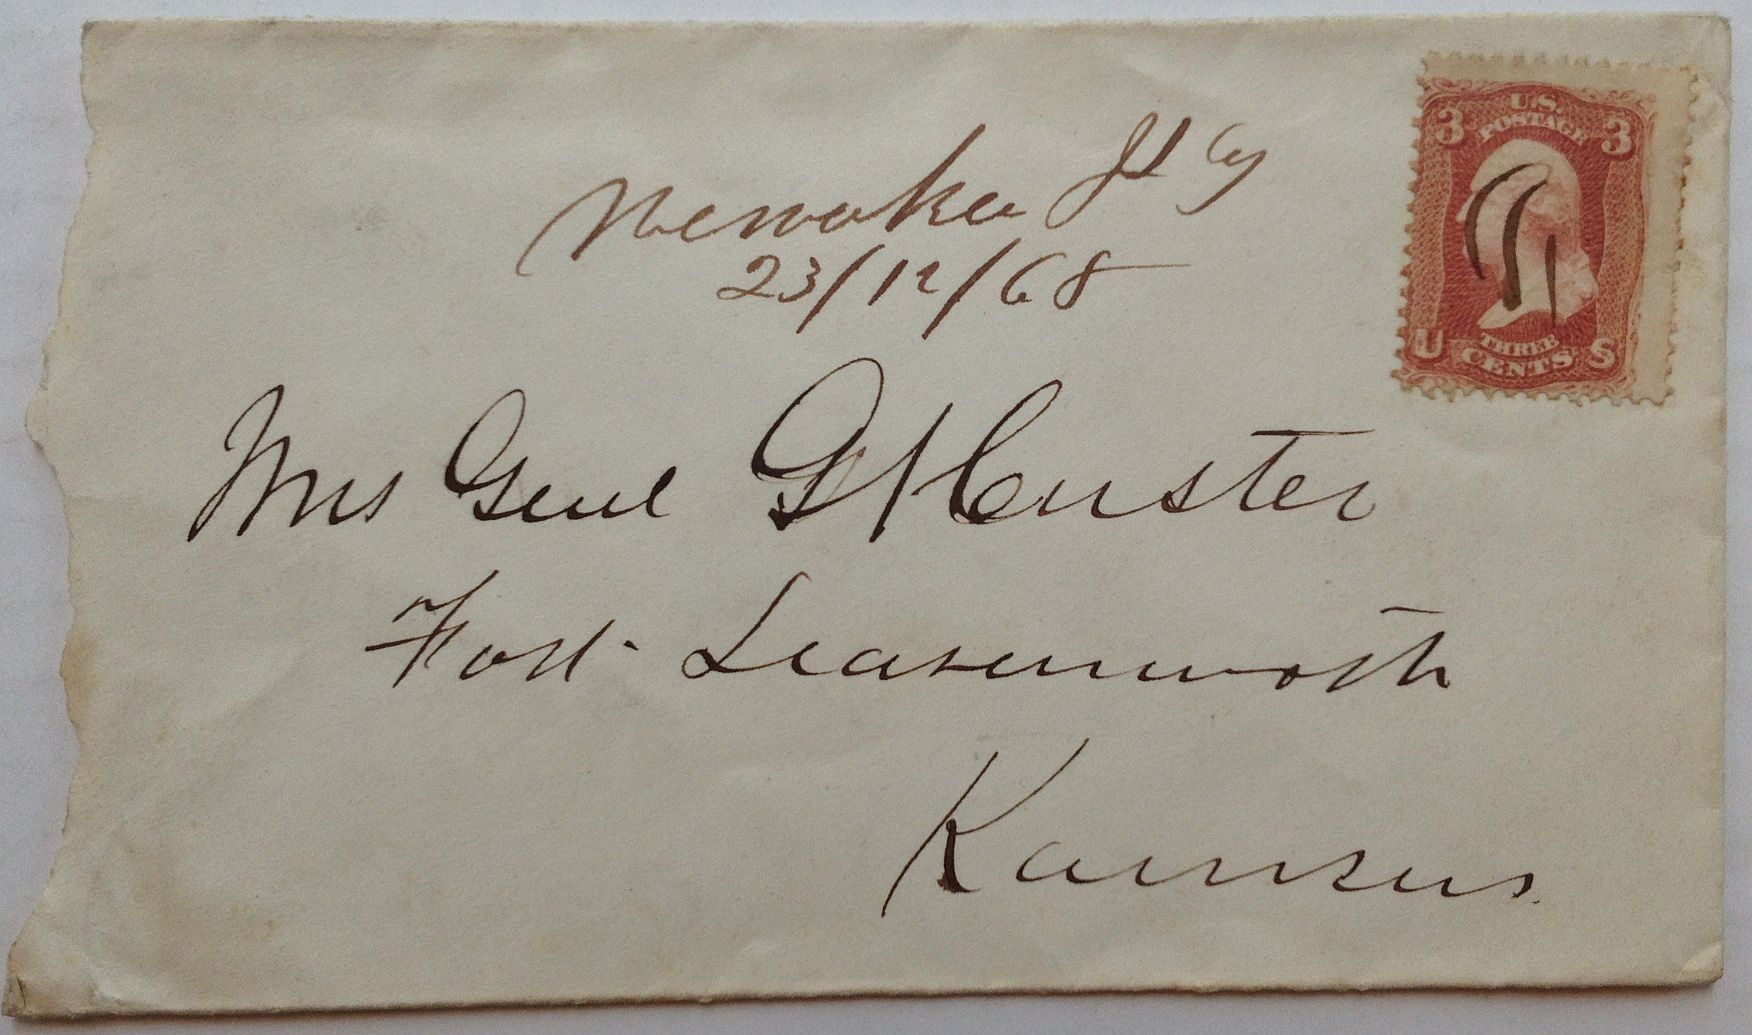 U.S.
POSTAGE
3 3
23/12/68
U THREE S
CENTS
Mrs Genl G A Custer
Fort Leavenworth
Kansas